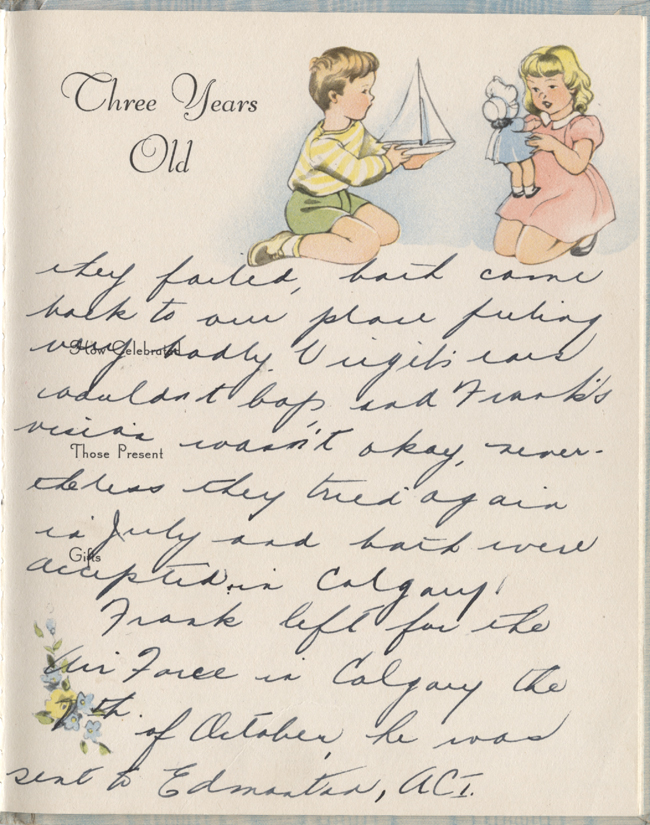 Three Years
Old
they failed, both came
back to our place feeling
How Celebrated
very badly. Virgil's ears
wouldn't bop, and Frank's
vision wasn't okay, never-
Those Present
theless they tried again
in July and both were
Gifts
accepted in Calgary!
Frank left for the
Air Force in Calgary the
7th. of October, he was
sent to Edmonton,